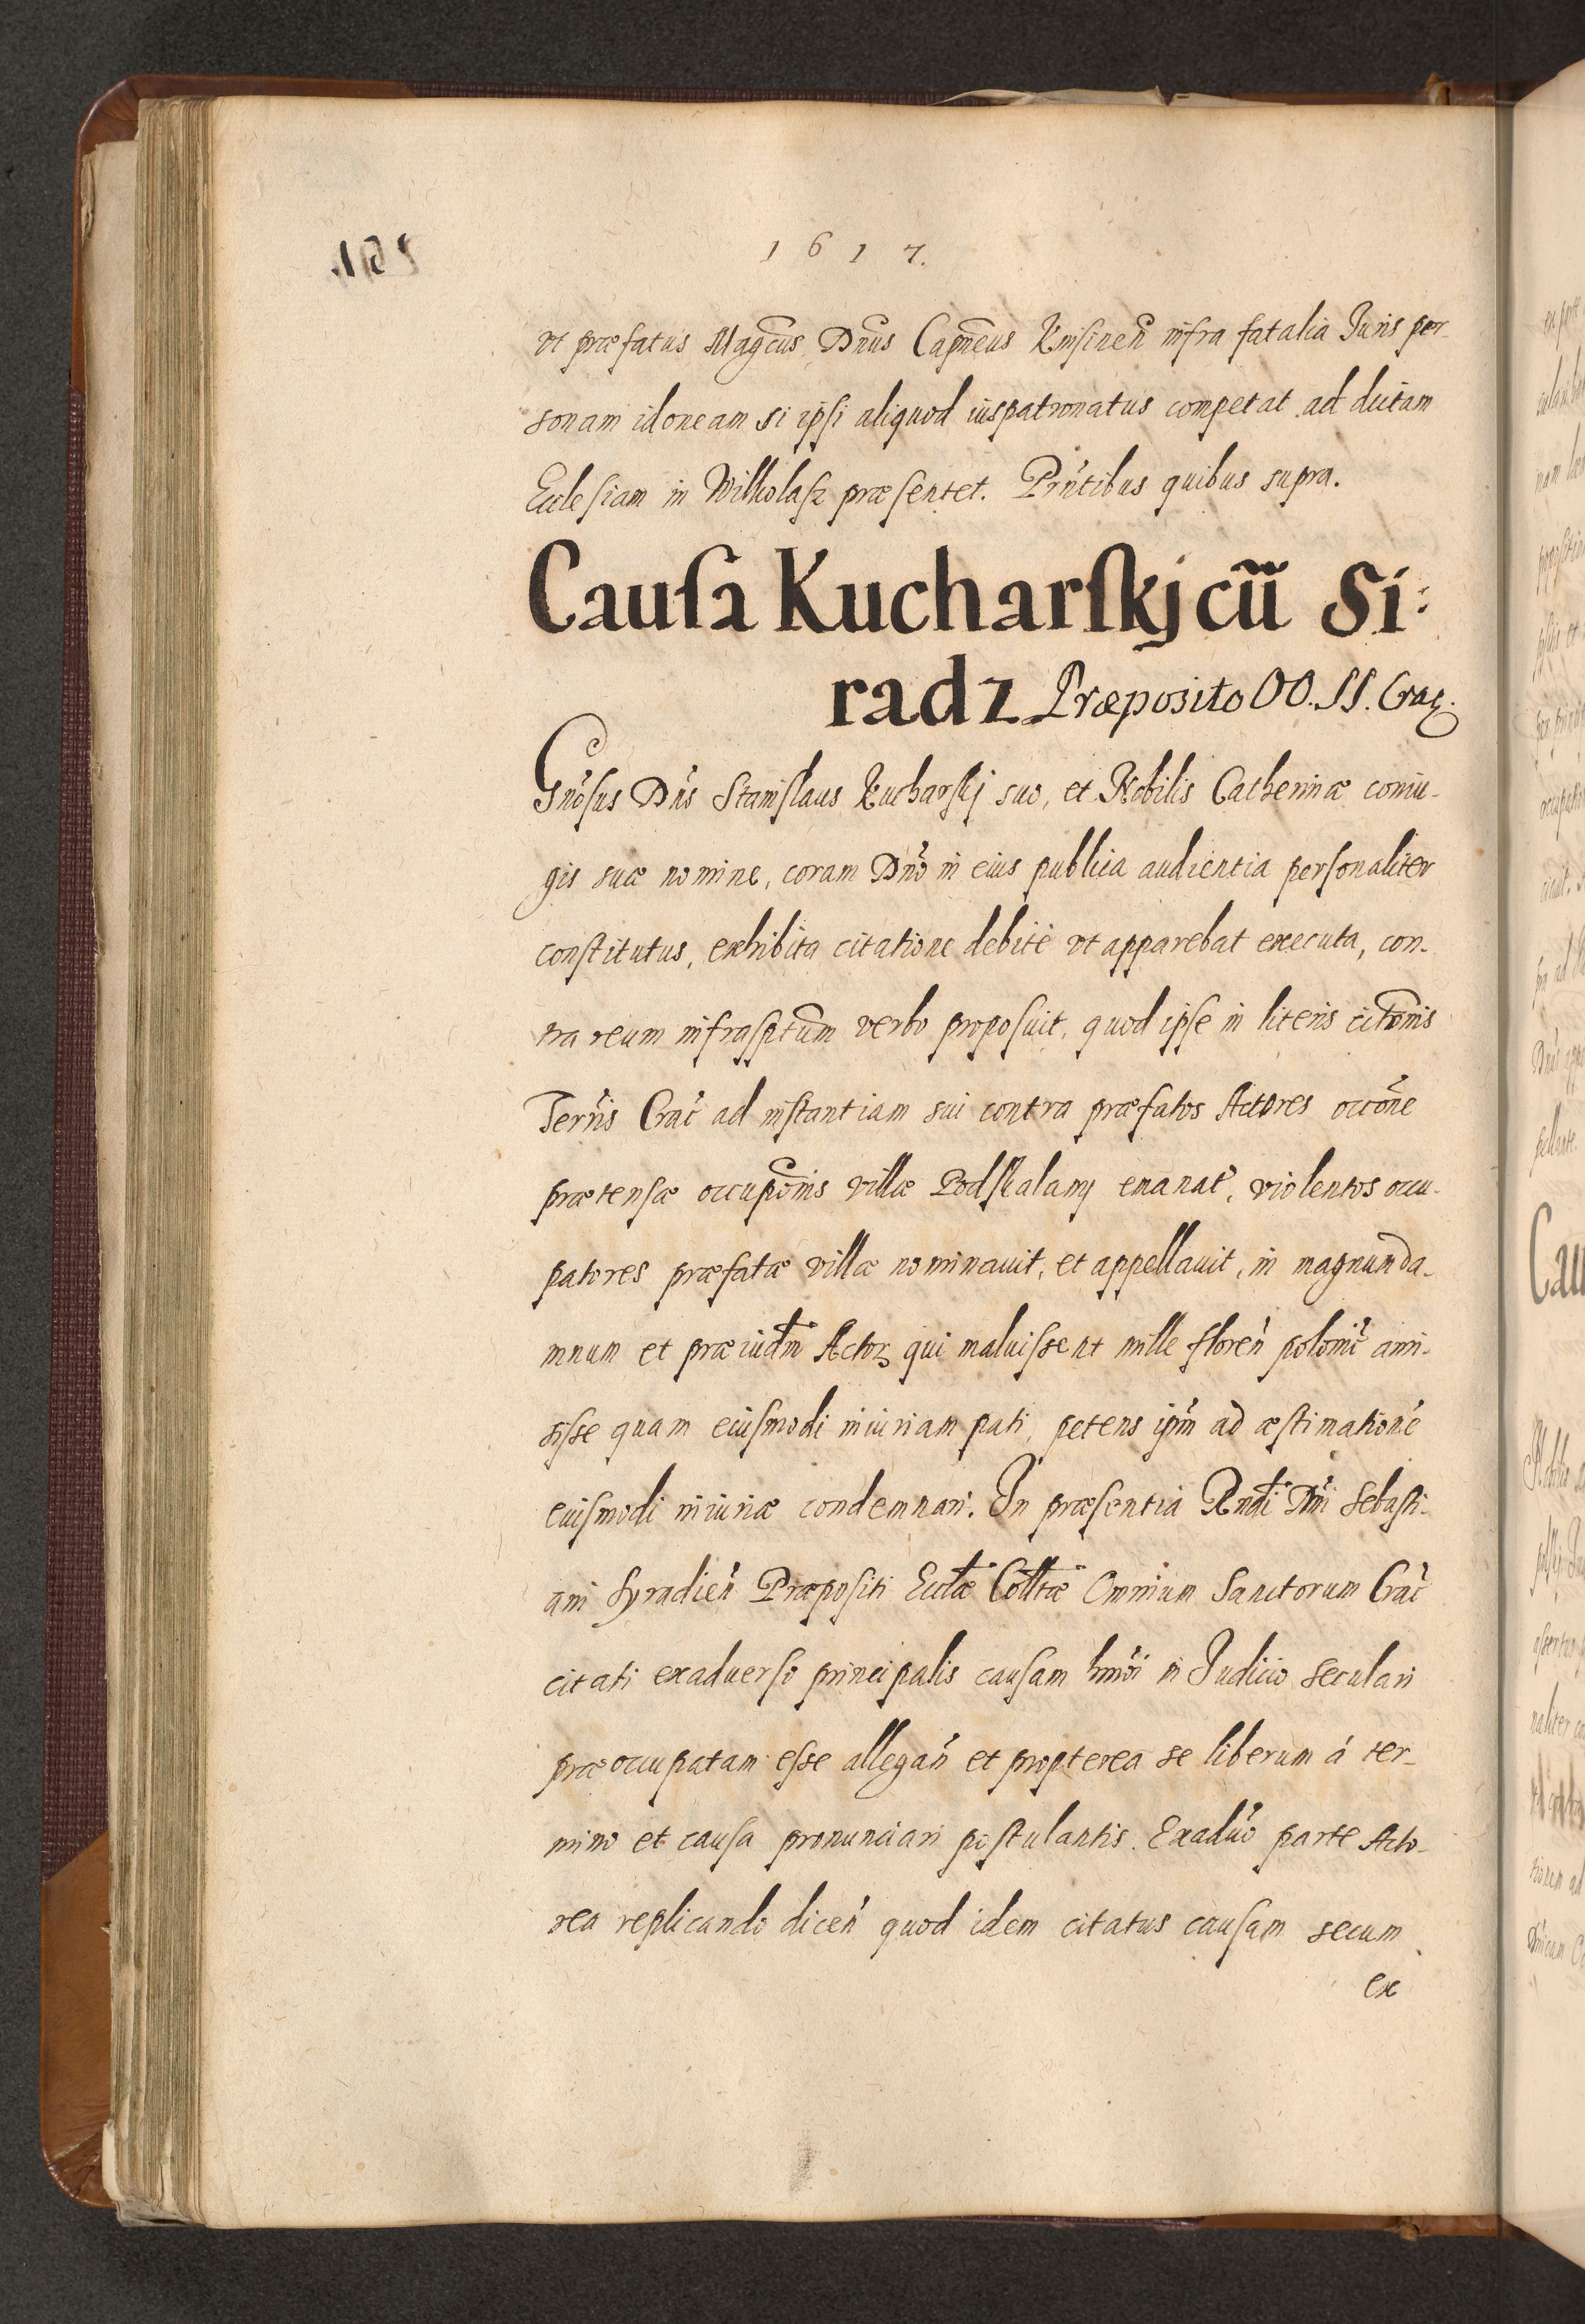 1617.
vt præfatus Magcus Dnus Capneus Kmsinen infra fatalia Juris per-
sonam idoneam si ipsi aliquod iuspatronatus competat ad dictam
Ecclesiam in Wilkolasz præsentet. Pntibus quibus supra.
Causa Kucharskj cũ Si:
radz Præposito OO. SS. Crac.
Gnosus Dns Stanislaus Kucharskj suo, et Nobilis Catherinæ coniu-
gis suæ nomine, coram Dno in eius publica audientia personaliter
constitutus, exhibita citatione debite vt apparebat executa, con-
tra reum infrasptum verbo proposuit, quod ipse in literis citonis
Terris Crac ad instantiam sui contra præfatos Actores occone
prætensæ occuponis villæ Podskalany emanat, violentos occu-
patores præfatæ villæ nominauit, et appellauit, in magnum da-
mnum et præiudm Actorꝝ qui maluissent mille floren polonic ami-
sisse quam eiusmodi iniuriam pati, petens ipm ad æstimatione
eiusmodi iniuriæ condemnari. In præsentia Rndi Dni Sebasti-
ani Syradien Præpositi Ecclæ Colltæ Omnium Sanctorum Crac
citati exaduerso principalis causam hmoi in Judicio seculari
præoccupatam esse allegan et propterea se liberum á ter-
mino et causa pronunciari postulantis. Exaduo parte Acto-
rea replicando dicen quod idem citatus causam secum
ex